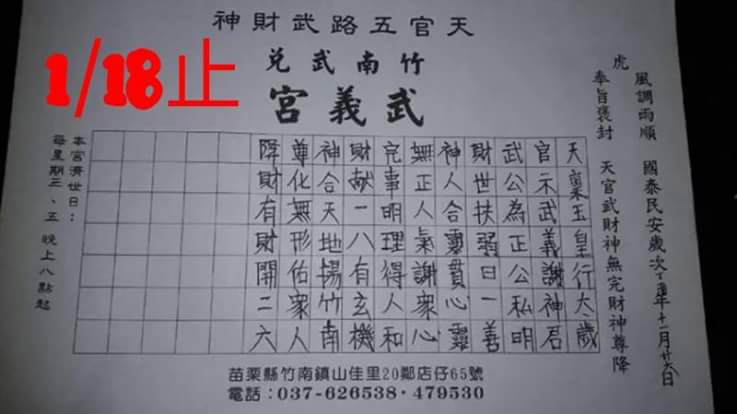 天官五路武財神
竹南武兌
武義宮
1/18止
風調雨順 國泰民安歲次丁酉年十一月廿六日
虎
奉旨褒封 天官武財神無完財神尊降
天稟玉皇行太歲
官示武義謝神君
武公為正公私明
財世扶弱日一善
神人合靈貫心靈
無正人氣謝眾心
完事明理得人和
財獻一八有玄機
神合天地揚竹南
尊化無形佑眾人
降財有財開二六
本宮濟世日：
每星期三、五 晚上八點起
苗栗縣竹南鎮山佳里20鄰店仔65號
電話：037-626538·479530